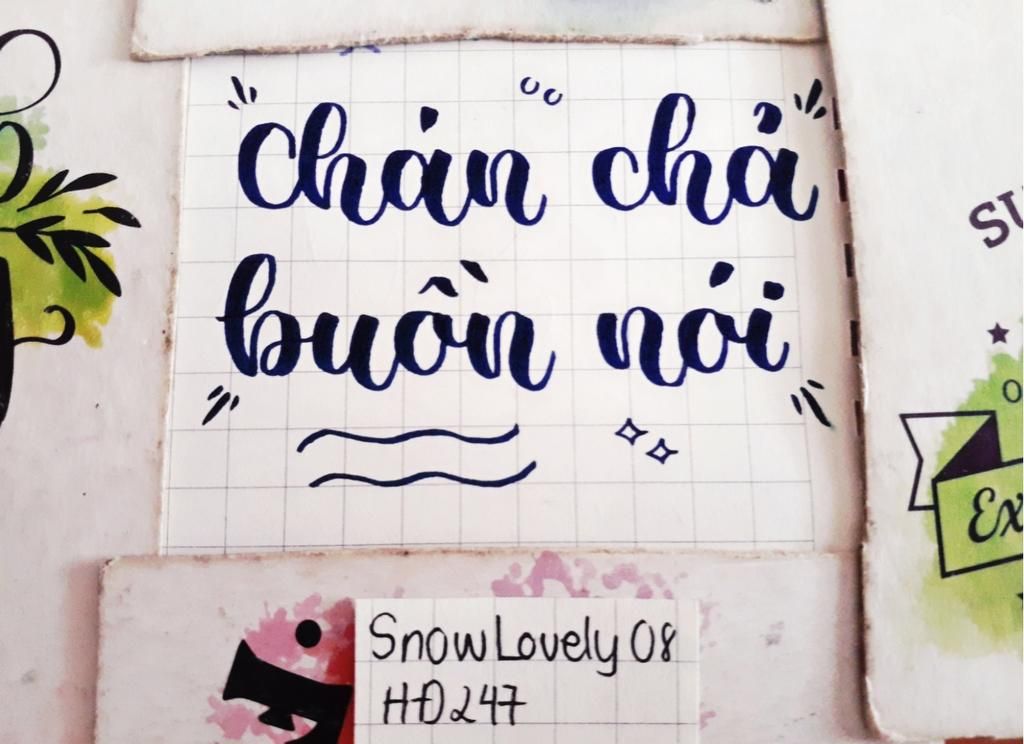 chán chả
buồn nói
SnowLovely 08
HĐ247
SU
O
Ex